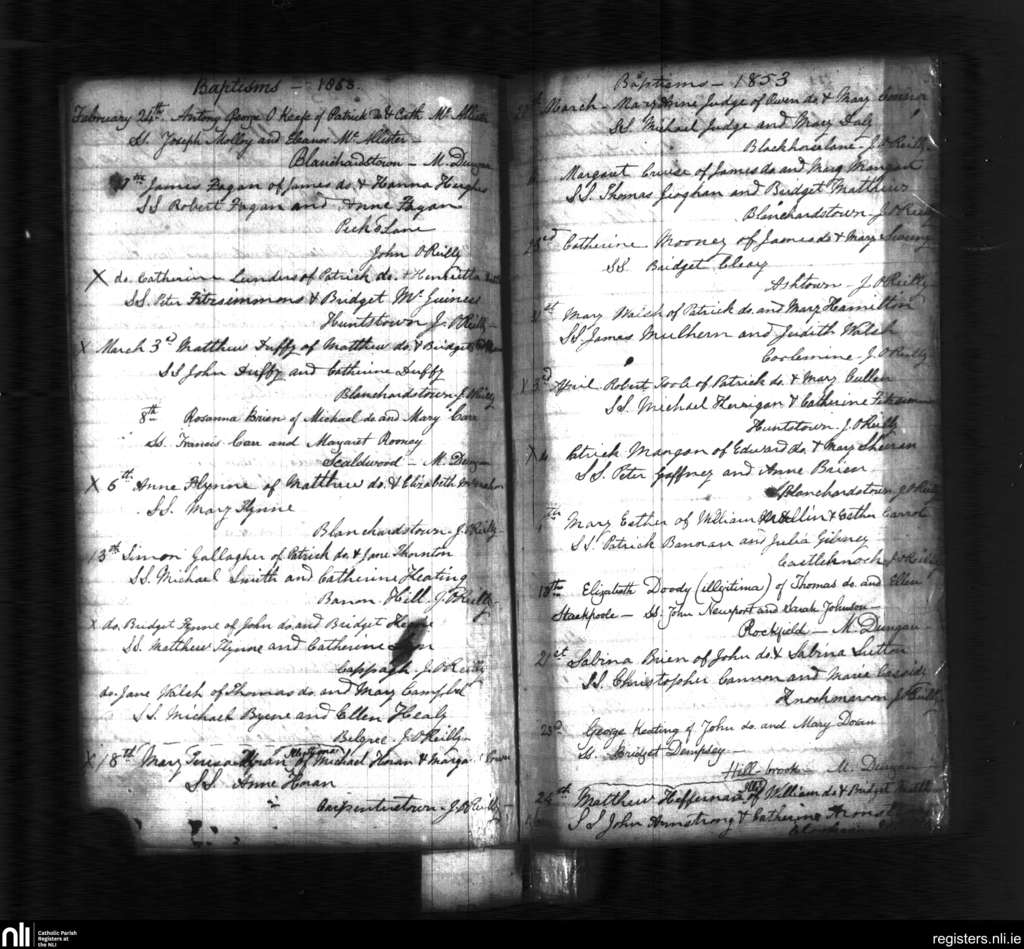 Baptisms - 1853.
February 24th. Antony George O Keafe of Patrick do & Cath Mc Allister
SS. Joseph Molloy and Eleanor Mc Alister -
Blanchardstown - M. Dungan
James Fagan of James do. & Hanna Hughes
SS Robert Fagan and Anne Fagan
Peck's Lane
John O'Reilly
X do. Catherine Lunders of Patrick do. & Henrietta
SS. Peter Fitzsimmons & Bridget Mc Guiness
Huntstown J. O'Reilly -
X March 3d Matthew Duffy of Matthew do. & Bridget
SS John Duffy and Catherine Duffy
Blanchardstown. J. O'Reilly
8th Rosanna Brien of Michael do and Mary Carr
Ss. Francis Carr and Margaret Rooney
Scaldwood - M. Dungan
X 6th Anne Flynne of Matthew do. & Elizabeth
SS. Mary Flynne
Blanchardstown. J. O'Reilly
13th Simon Gallagher of Patrick do. & Jane Thornton
SS. Michael Smith and Catherine Keating
Banon Hill. J. O'Reilly
X do. Bridget Flynne of John do. and Bridget
SS. Matthew Flynne and Catherine
Cappagh. J. O'Reilly
do. Jane Welch of Thomas do. and Mary Campbel
SS. Michael Byrne and Ellen Healy
Belgree. J. O'Reilly -
X 18th Mary Teresa Horan of Michael Horan & Marga
SS. Anne Horan
Carpenterstown - J. O'Reilly
Baptisms - 1853
March - Mary Anne Judge of Owen do. & Mary Connor
SS. Michael Judge and Mary Daly
Blackhorse lane - J. O'Reilly.
Margaret Cruise of James do and Mary Mangan
SS. Thomas Geoghan and Bridget Mathews
Blanchardstown - J. O'Reilly
Catherine Mooney of James do & Mary
SS Bridget Cleary
Ashtown - J. O'Reilly
Mary Walch of Patrick do. and Mary Hamilton
SS. James Mulhern and Judith Walch
J. O'Reilly
X 3rd April Robert Toole of Patrick do. & Mary Cullen
SS. Michael Kerrigan & Catherine
Huntstown. J. O'Reilly
X Patrick Mangon of Edward do. & Mary Sheran
SS. Peter Gaffney and Anne Brien
Blanchardstown J. O'Reilly
Mary Esther of William & Esther Carrol
SS. Patrick Bannan and Julia Gibney
Castleknock J. O'Reilly
18th Elizabeth Doody (illegitima) of Thomas do. and Ellen
Stackpoole - SS. John Newport and Sarah Johnson -
Rockfield - M. Dungan -
21st Sabina Brien of John do. & Sabina Sutton
SS. Christopher Cannon and Maria Cassidy
Knockmaroon J. O'Reilly
23d. George Keating of John do. and Mary Doran
Ss. Bridget Dempsey -
Hill-brook - M. Dungan -
24th Matthew Heffernan of William do & Bridget
SS John Armstrong & Catherine
nli
Catholic Parish
Registers at
the NLI
registers.nli.ie